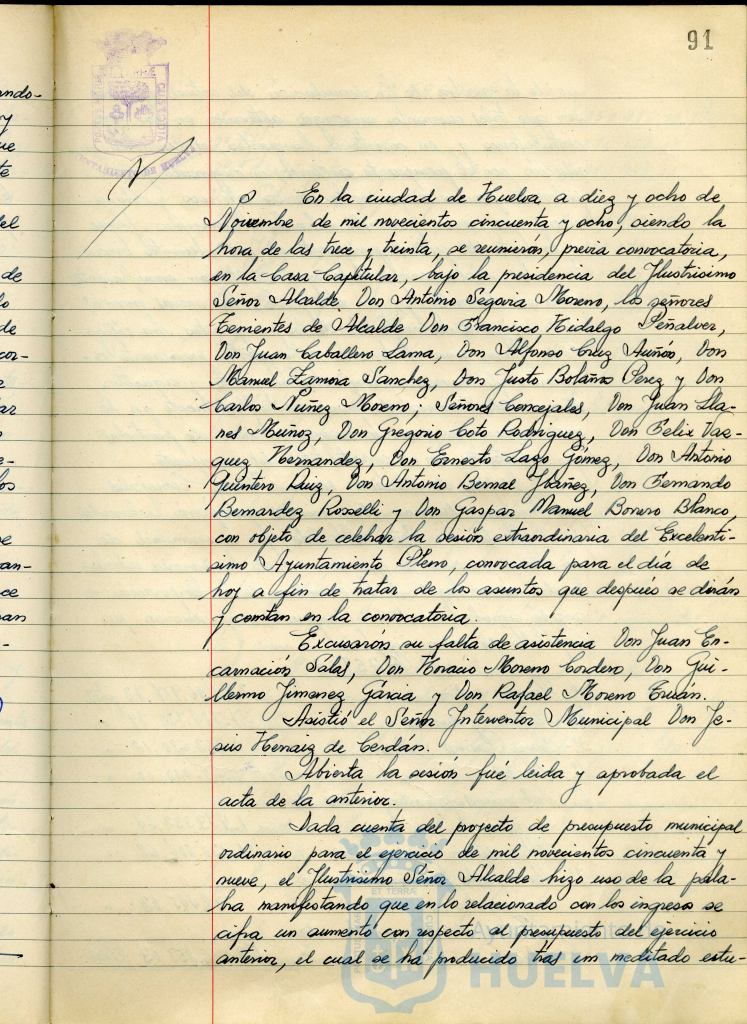 91
ando-
y
ue
te
del
de
lo
de
cor-
ar
e-
los
se
an-
ce
san
En la ciudad de Huelva a diez y ocho de
Noviembre de mil novecientos cincuenta y ocho, siendo la
hora de las trece y treinta, se reunierón, previa convocatoria,
en la Casa Capitular, bajo la presidencia del Ilustrisimo
Señor Alcalde Don Antonio Segovia Moreno, los señores
Tenientes de Alcalde Don Francisco Hidalgo Peñalver,
Don Juan Caballero Lama, Don Alfonso Cruz Auñón, Don
Manuel Zamora Sanchez, Don Justo Bolaños Perez y Don
Carlos Nuñez Moreno; Señores Concejales, Don Juan Lla-
nes Muñoz, Don Gregorio Coto Rodriguez, Don Felix Vaz-
quez Hernandez, Don Ernesto Lazo Gómez, Don Antonio
Quintero Ruiz, Don Antonio Bernal Ybañez, Don Fernando
Bernardez Rosselli y Don Gaspar Manuel Borrero Blanco,
con objeto de celebrar la sesión extraordinaria del Excelenti-
simo Ayuntamiento Pleno, convocada para el día de
hoy a fin de tratar de los asuntos que después se dirán
y constan en la convocatoria.
Excusarón su falta de asistencia Don Juan En-
carnación Salas, Don Horacio Moreno Cordero, Don Gui-
llermo Jimenez Garcia y Don Rafael Moreno Truán.
Asistió el Señor Interventor Municipal Don Je-
sus Hernaiz de Cerdán.
Abierta la sesión fué leida y aprobada el
acta de la anterior.
Dada cuenta del proyecto de presupuesto municipal
ordinario para el ejercicio de mil novecientos cincuenta y
nueve, el Ilustrisimo Señor Alcalde hizo uso de la pala-
bra manifestando que en lo relacionado con los ingresos se
cifra un aumento con respecto al presupuesto del ejercicio
anterior, el cual se ha producido tras un meditado estu-
Ayuntamiento
HUELVA